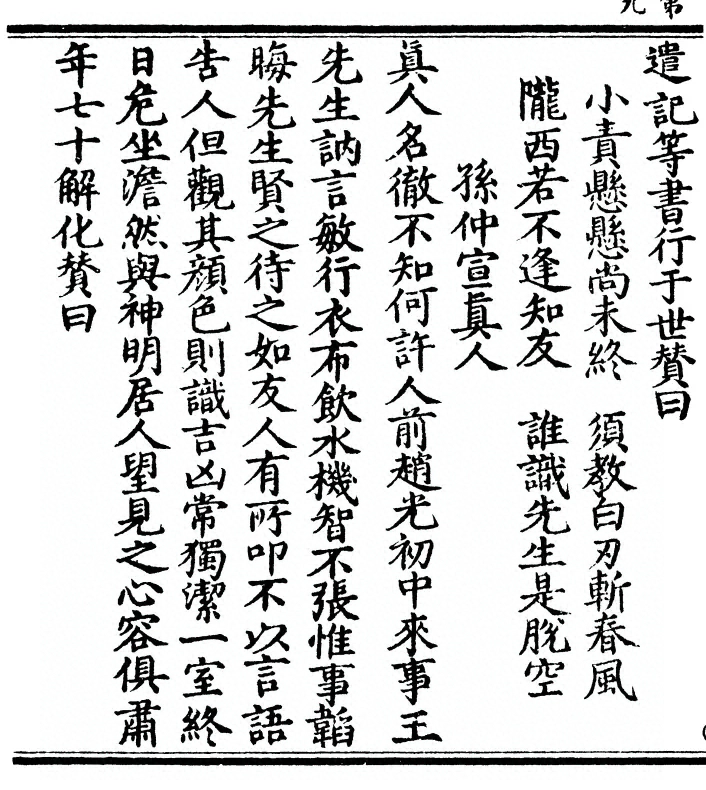 遣記等書行于世賛曰
小責懸懸尚未終　須教白刃斬春風
隴西若不逢知友　誰識先生是脫空
孫仲宣真人
真人名徹不知何許人前趙光初中來事王
先生訥言敏行衣布飲水機智不張惟事韜
晦先生賢之待之如友人有所叩不以言語
告人但觀其顔色則識吉凶常獨潔一室終
日危坐澹然與神明居人望見之心容俱肅
年七十解化賛曰